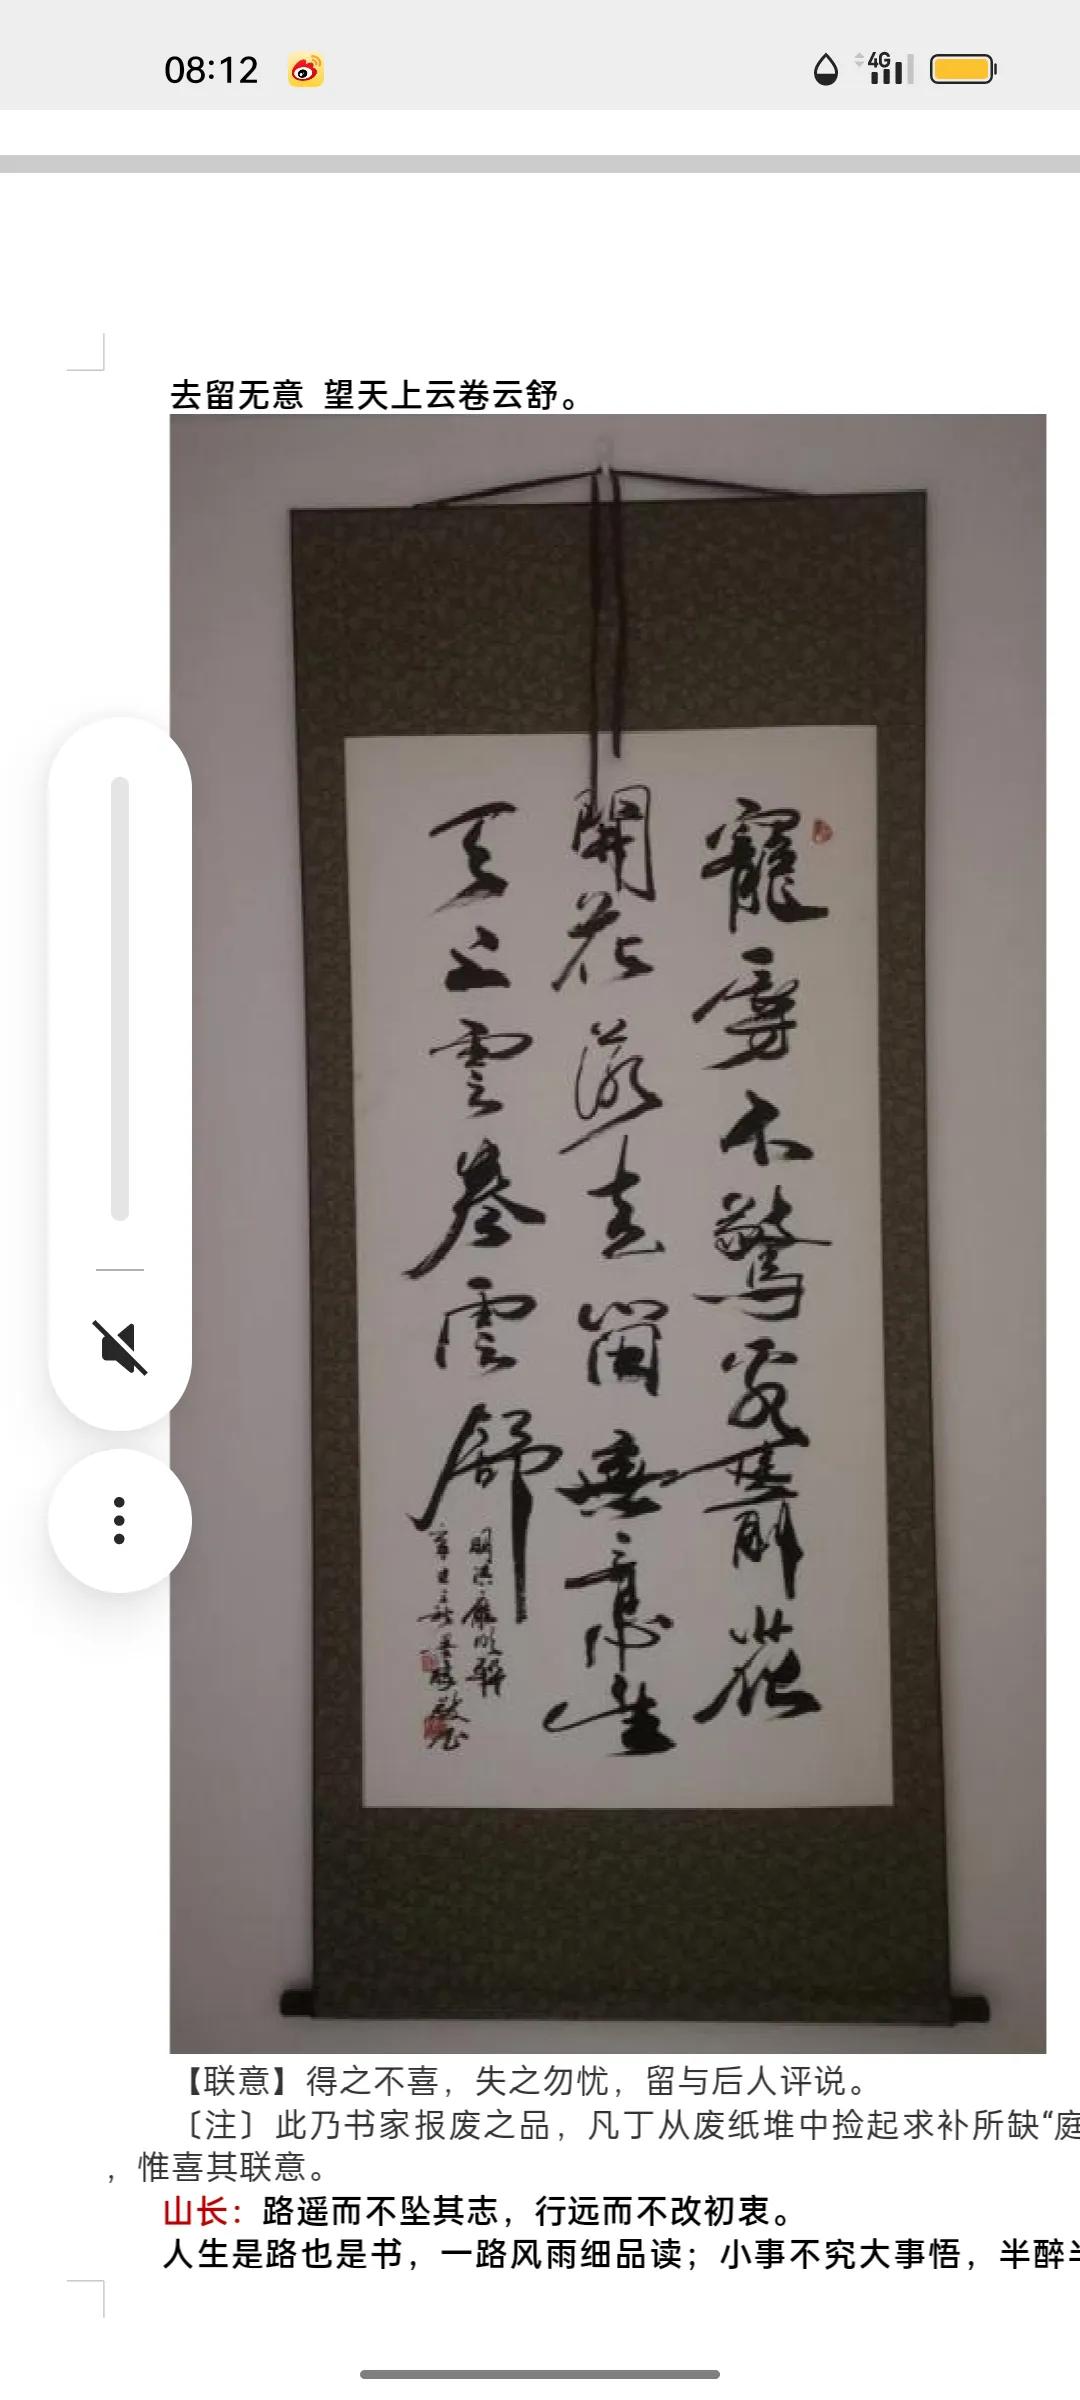 08:12
4G
去留无意 望天上云卷云舒。
寵辱不驚看庭前花
開花落去留無意望
天上雲卷雲舒
明洪應明聯
【联意】得之不喜，失之勿忧，留与后人评说。
〔注〕此乃书家报废之品，凡丁从废纸堆中捡起求补所缺“庭
，惟喜其联意。
山长：路遥而不坠其志，行远而不改初衷。
人生是路也是书，一路风雨细品读；小事不究大事悟，半醉